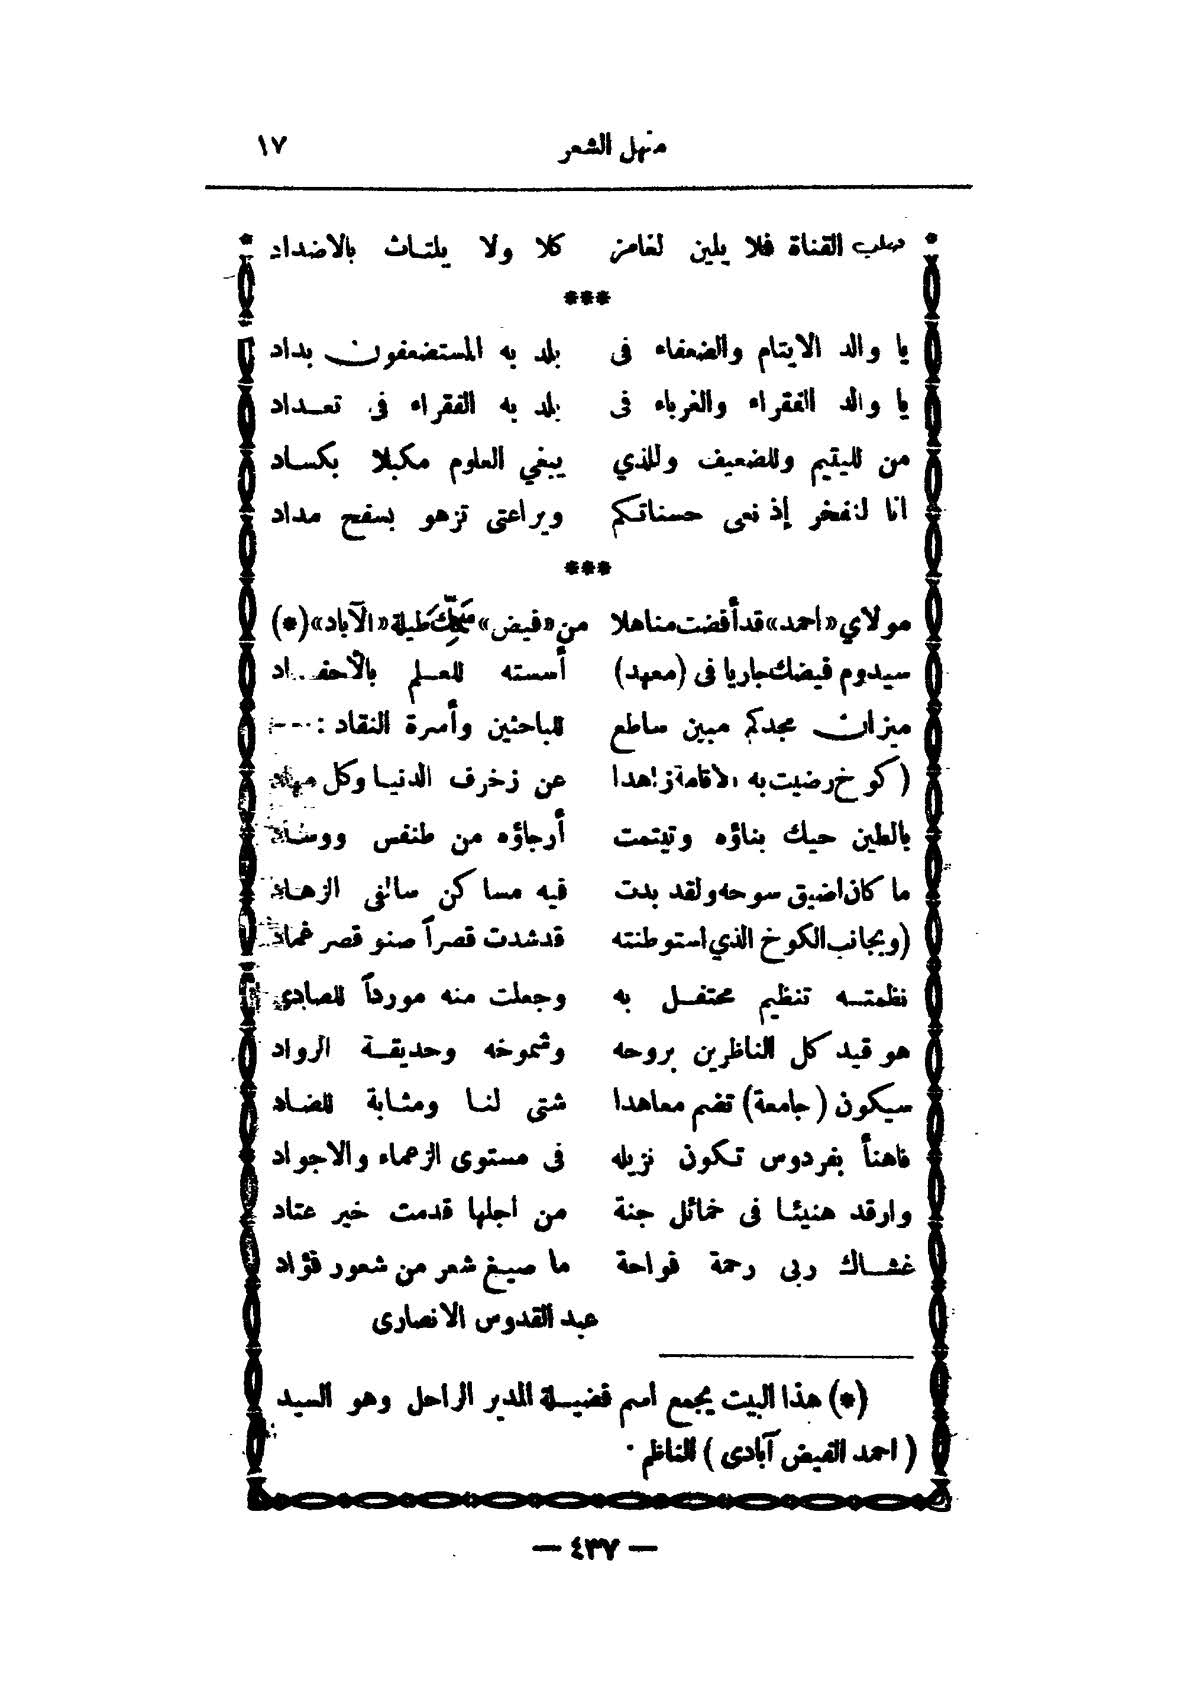 منهل الشعر ١٧
القناة فلا يلين لغامز كلا ولا يلتاث بالاضداد
***
يا والد الايتام والضعفاء فى بلد به المستضعفون بداد
يا والد الفقراء والغرباء فى بلد به الفقراء فى تعداد
من لليتيم وللضعيف وللذي يبغي العلوم مكبلا بكساد
انا لنفخر إذ نعى حسناتكم ويراعتى تزهو بسفح مداد
***
مولاي «احمد» قد أفضت مناهلا من «فيض» طيلة «الآباد» (*)
سيدوم فيضك جاريا فى (معهد) أسسته للعلم بالأحفاد
ميزان مجدكم مبين ساطع للباحثين وأسرة النقاد :
(كوخ رضيت به الاقامة زاهدا عن زخرف الدنيا وكل مهاد
بالطين حيك بناؤه وتيتمت أرجاؤه من طنفس ووساد
ما كان اضيق سوحه ولقد بدت فيه مساكن سالفى الزهاد
(وبجانب الكوخ الذي استوطنته قد شدت قصراً صنو قصر غماد
نظمته تنظيم محتفل به وجعلت منه مورداً للصادى
هو قيد كل الناظرين بروحه وشموخه وحديقة الرواد
سيكون (جامعة) تضم معاهدا شتى لنا ومثابة للضاد
فاهنأ بفردوس تكون نزيله فى مستوى الزعماء والاجواد
وارقد هنيئا فى خمائل جنة من اجلها قدمت خير عتاد
غشاك ربى رحمة فواحة ما صيغ شعر من شعور فؤاد
عبد القدوس الانصارى
(*) هذا البيت يجمع اسم فضيلة المدير الراحل وهو السيد
( احمد الفيض آبادى ) الناظم ٠
— ٤٣٧ —